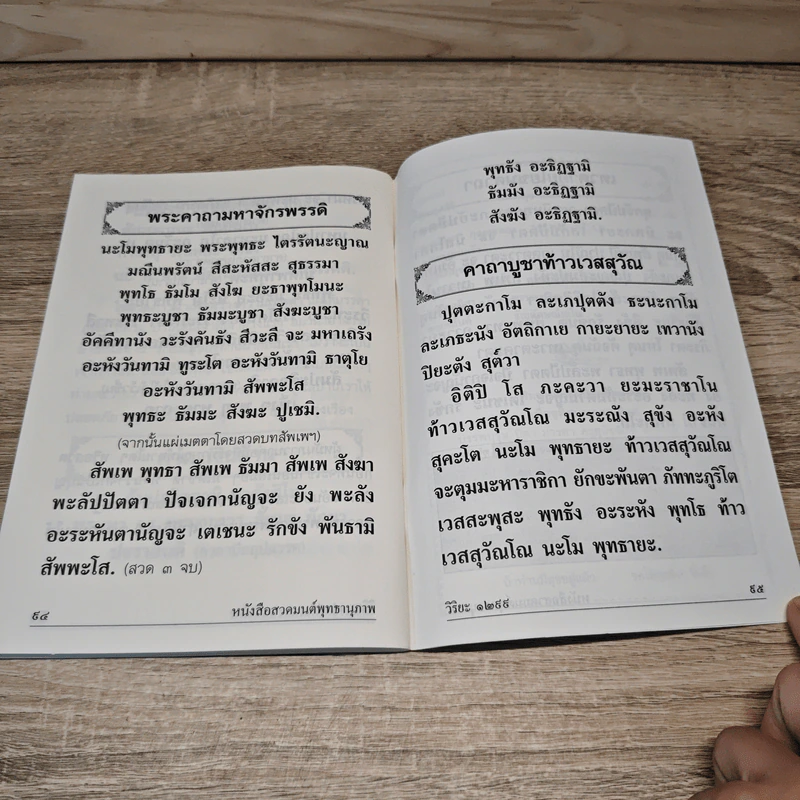 พระคาถามหาจักรพรรดิ
นะโมพุทธายะ พระพุทธะ ไตรรัตนะญาณ
มณีนพรัตน์ สีสะหัสสะ สุธรรมา
พุทโธ ธัมโม สังโฆ ยะธาพุทโมนะ
พุทธะบูชา ธัมมะบูชา สังฆะบูชา
อัคคีทานัง วะรังคันธัง สีวะลี จะ มหาเถรัง
อะหังวันทามิ ทูระโต อะหังวันทามิ ธาตุโย
อะหังวันทามิ สัพพะโส
พุทธะ ธัมมะ สังฆะ ปูเชมิ.
(จากนั้นแผ่เมตตาโดยสวดบทสัพเพฯ)
สัพเพ พุทธา สัพเพ ธัมมา สัพเพ สังฆา
พะลัปปัตตา ปัจเจกานัญจะ ยัง พะลัง
อะระหันตานัญจะ เตเชนะ รักขัง พันธามิ
สัพพะโส. (สวด ๓ จบ)
๙๔ หนังสือสวดมนต์พุทธานุภาพ
พุทธัง อะธิฏฐามิ
ธัมมัง อะธิฏฐามิ
สังฆัง อะธิฏฐามิ.
คาถาบูชาท้าวเวสสุวัณ
ปุตตะกาโม ละเภปุตตัง ธะนะกาโม
ละเภธะนัง อัตถิกาเย กายะยายะ เทวานัง
ปิยะตัง สุต๎วา
อิติปิ โส ภะคะวา ยะมะราชาโน
ท้าวเวสสุวัณโณ มะระณัง สุขัง อะหัง
สุคะโต นะโม พุทธายะ ท้าวเวสสุวัณโณ
จะตุมมะหาราชิกา ยักขะพันตา ภัททะภูริโต
เวสสะพุสะ พุทธัง อะระหัง พุทโธ ท้าว
เวสสุวัณโณ นะโม พุทธายะ.
วิริยะ ๑๒๙๙ ๙๕